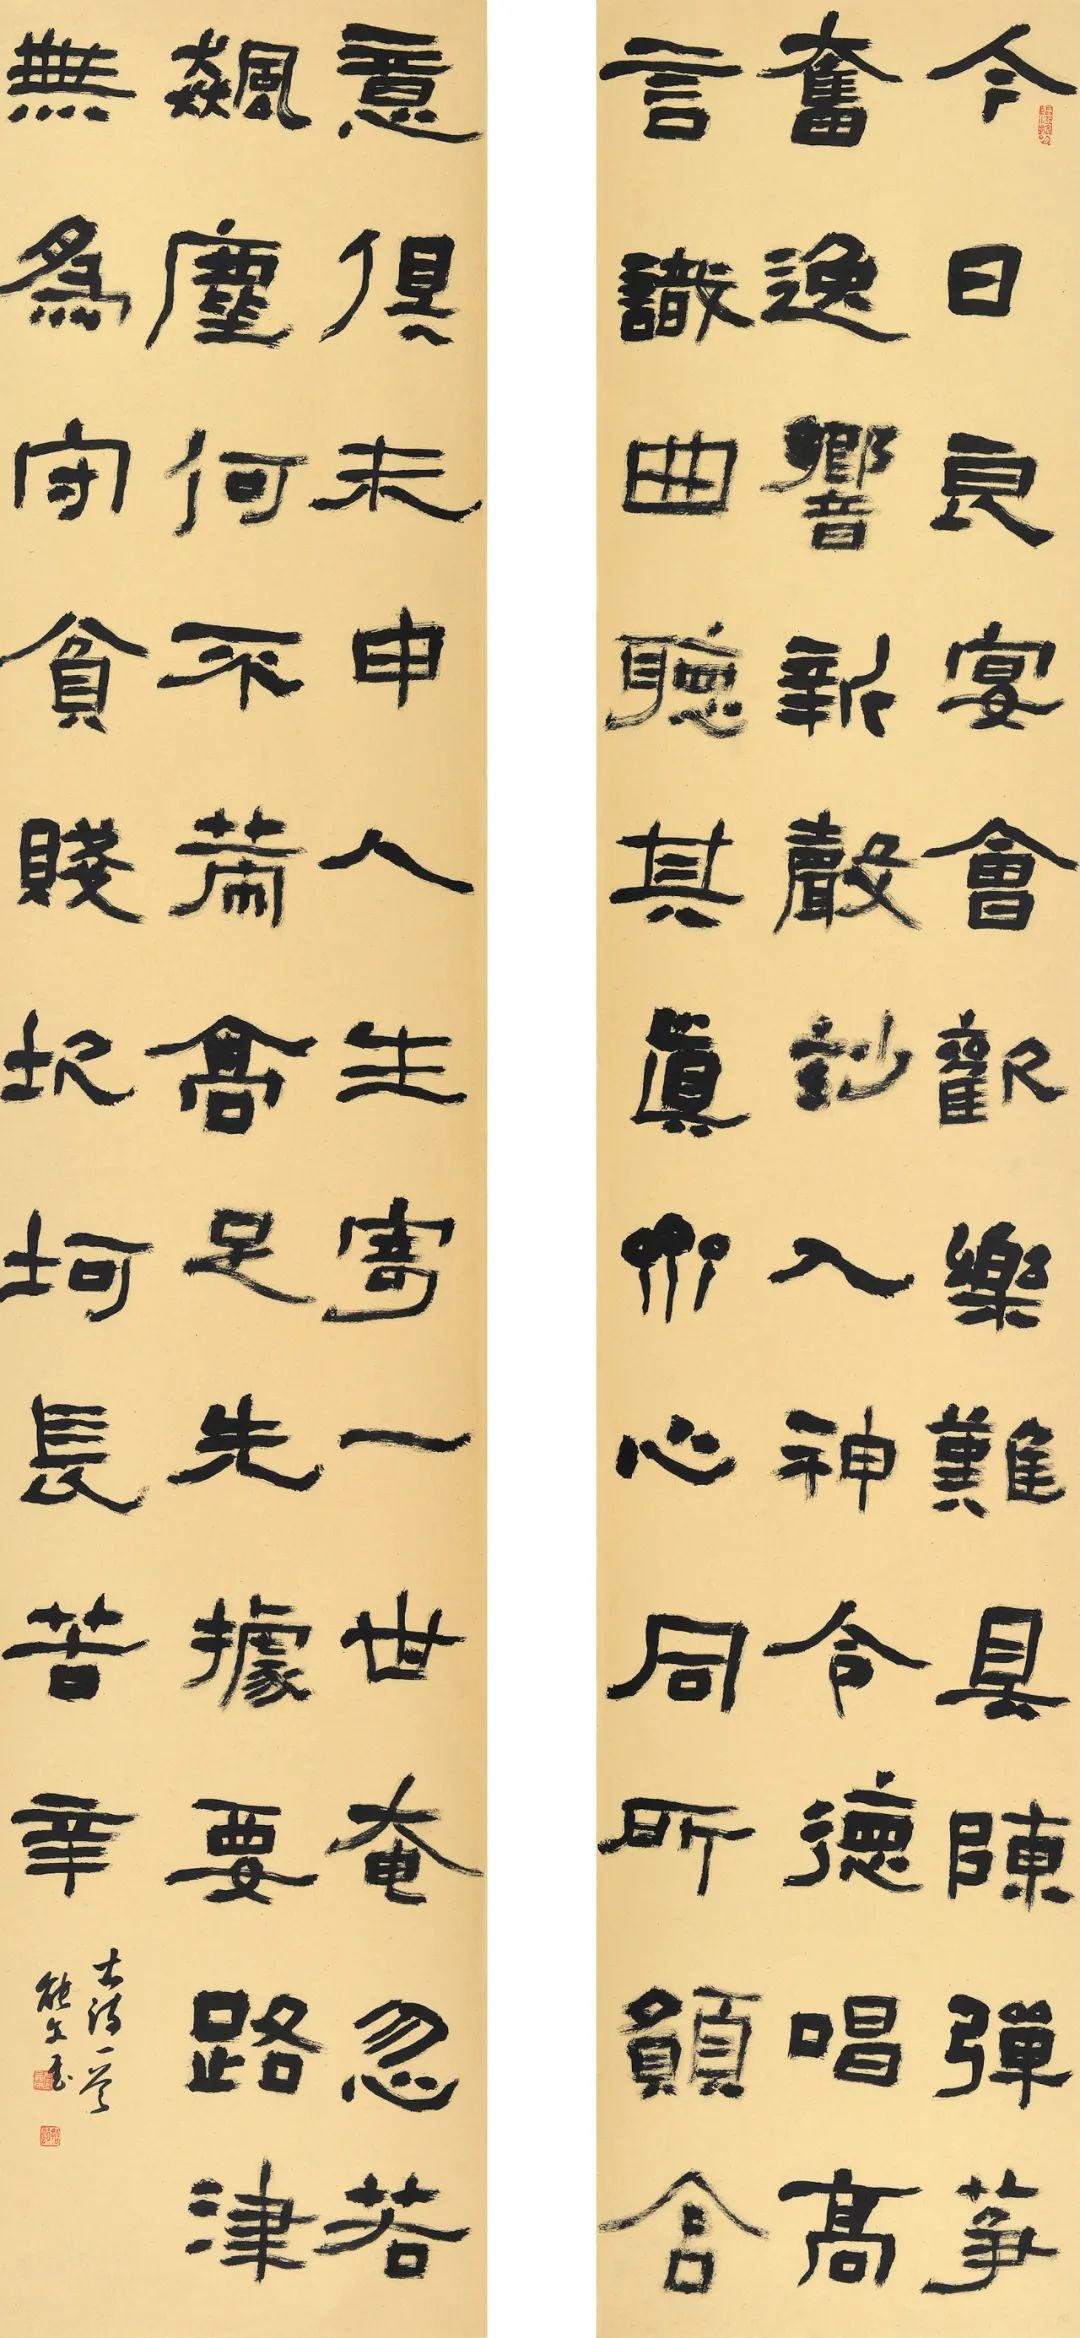 今日良宴會歡樂難具陳彈箏
奮逸響新聲妙入神令德唱高
言識曲聽其真齊心同所願含
意俱未申人生寄一世奄忽若
飆塵何不策高足先據要路津
無為守貧賤坎坷長苦辛
古詩一首